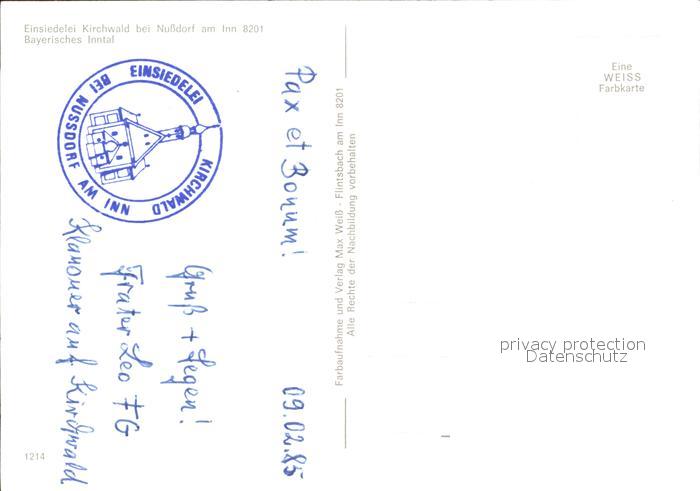 Einsiedelei Kirchwald bei Nußdorf am Inn 8201
Bayerisches Inntal
EINSIEDELEI KIRCHWALD
BEI NUSSDORF AM INN
Pax et Bonum!
09.02.85
Gruß + Segen!
Frater Leo FG
auf Kirchwald
Farbaufnahme und Verlag Max Weiß - Flintsbach am Inn 8201
Alle Rechte der Nachbildung vorbehalten
Eine
WEISS
Farbkarte
privacy protection
Datenschutz
1214